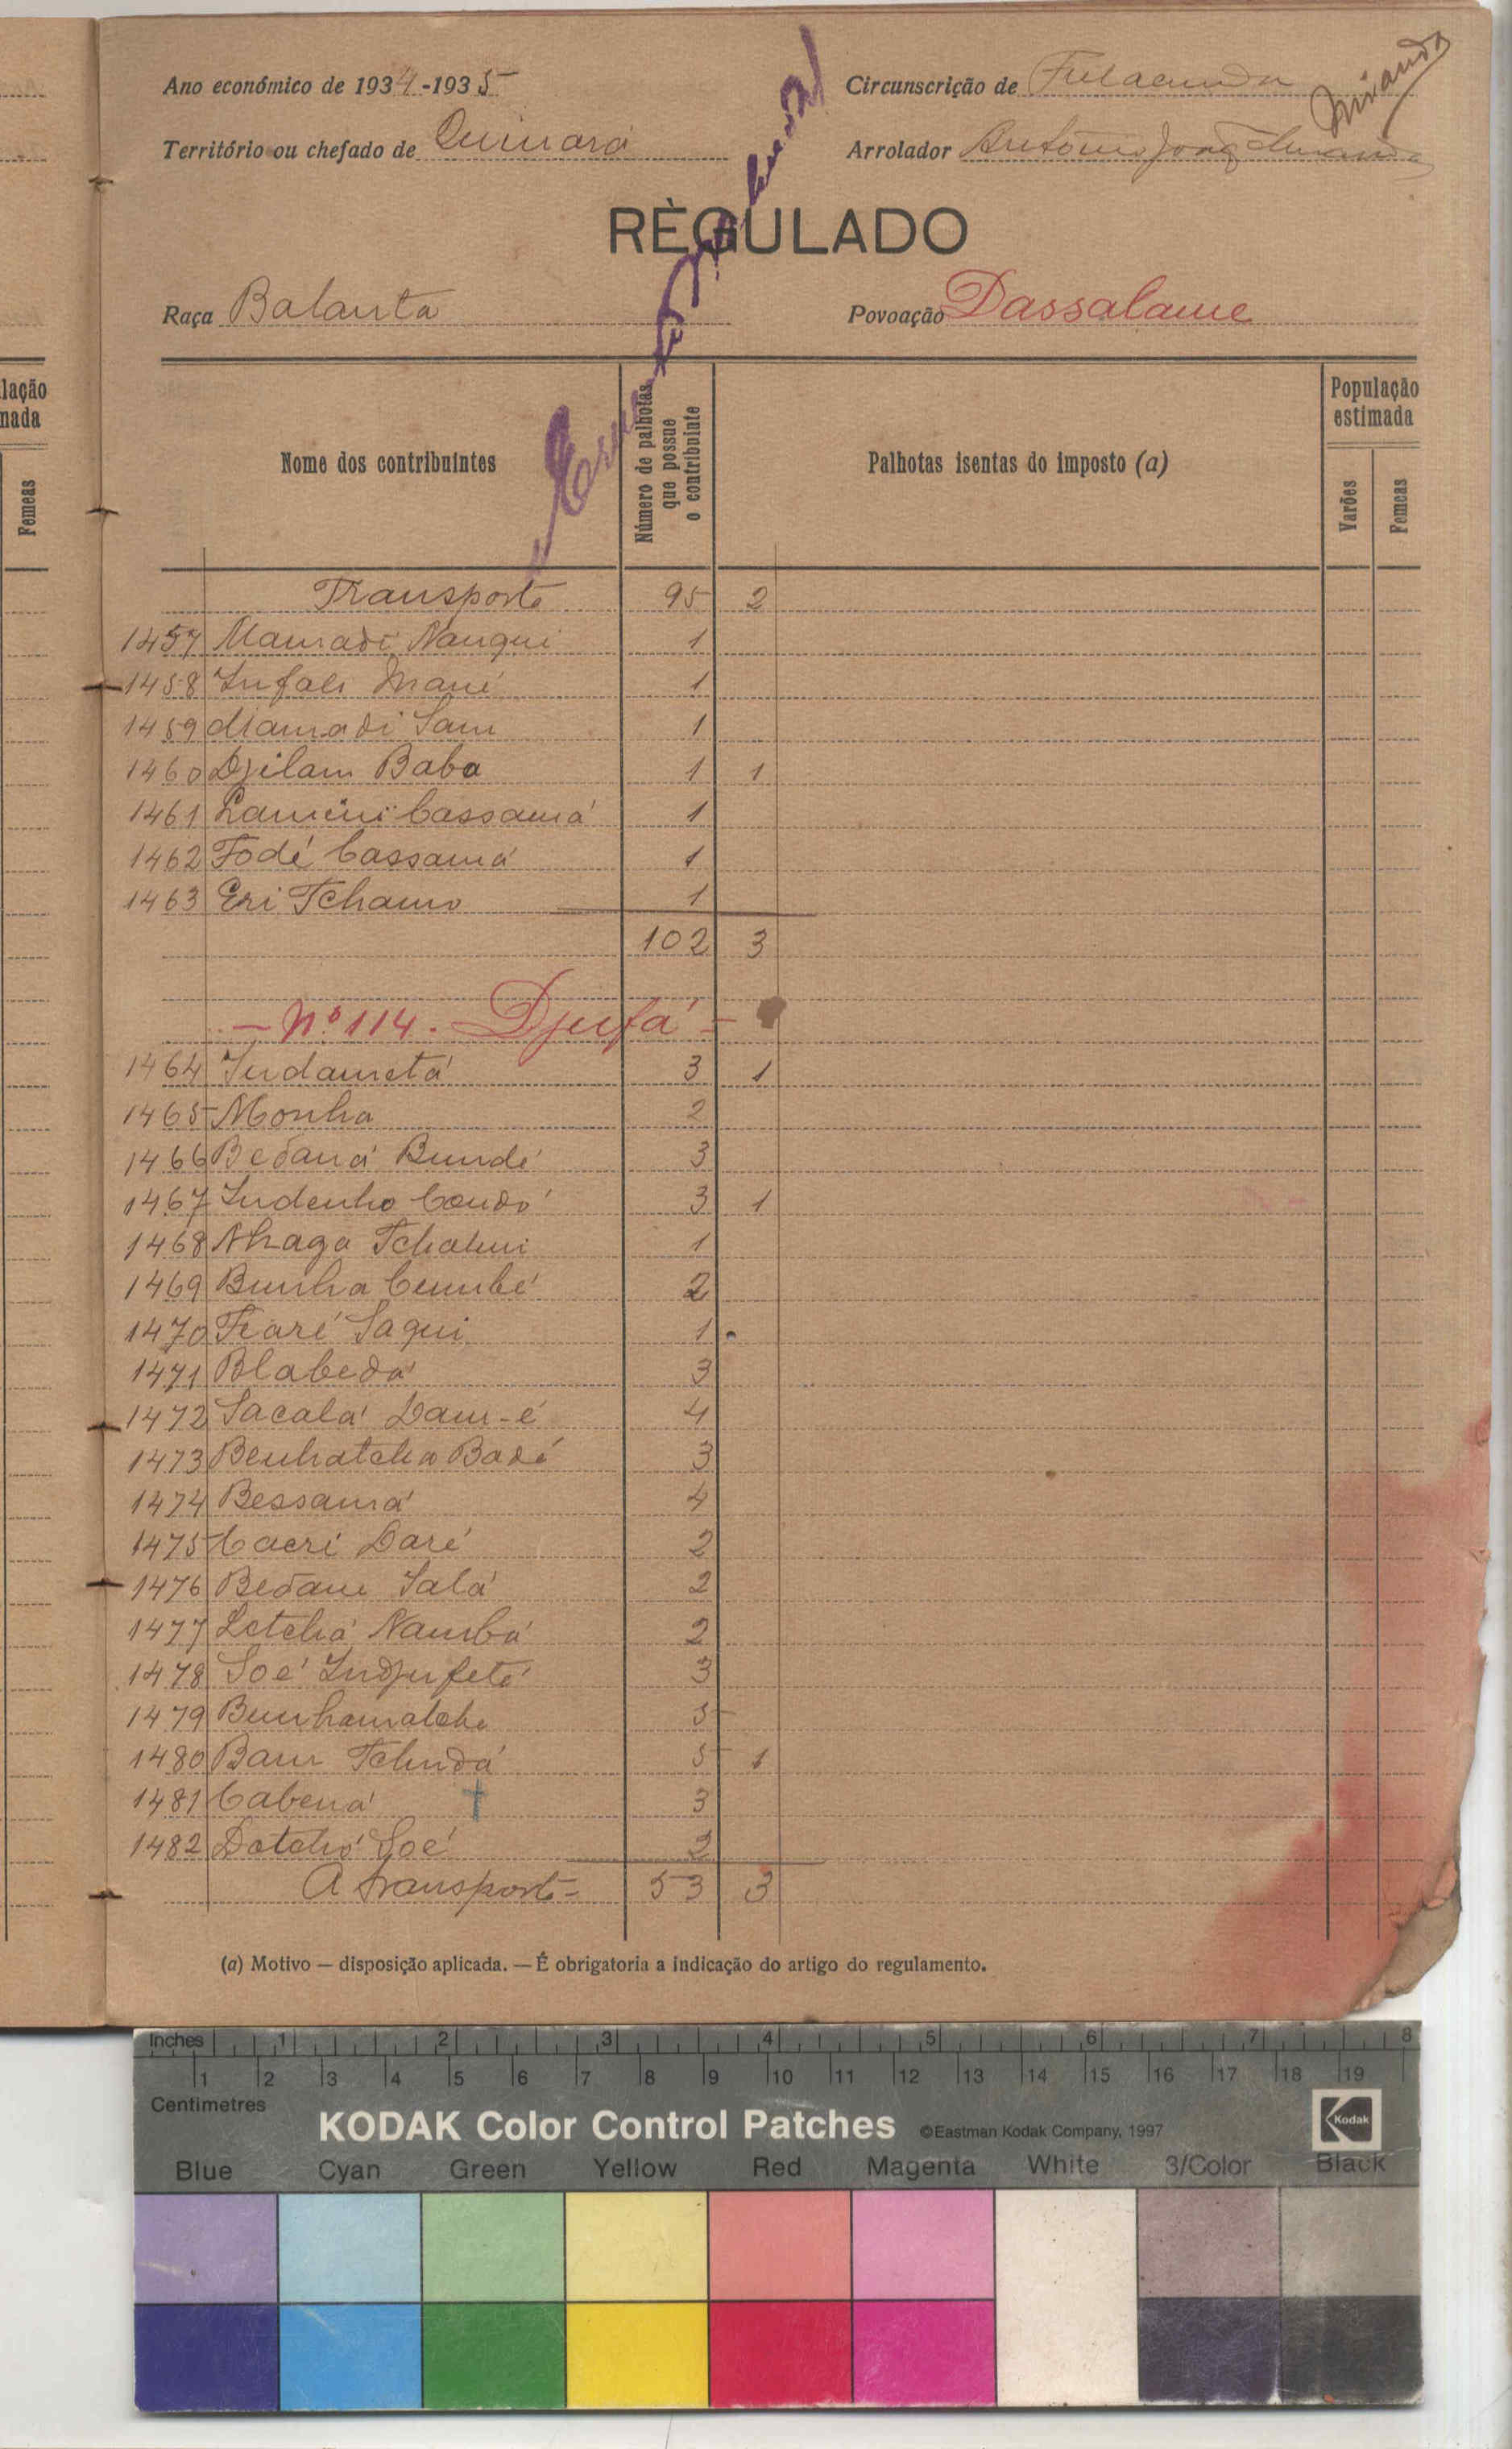 Ano económico de 1934-1935
Circunscrição de Fulacunda
Miranda
Território ou chefado de Quinará
Arrolador António
RÈGULADO
Raça Balanta
Povoação Dassalame
lação
nada
Femeas
Nome dos contribuintes
Número de palhotas que possue o contribuinte
Palhotas isentas do imposto (a)
População estimada
Varões
Femeas
Transporte 95 2
1457 Mamadi Nanqui 1
1458 Infali Mané 1
1459 Mamadi Sani 1
1460 Djilam Baba 1 1
1461 Lamini Cassamá 1
1462 Fodé Cassamá 1
1463 Eri Tchamo 1
102 3
— Nº 114. Djufá —
1464 Indametá 3 1
1465 Monha 2
1466 Bedaná Bundé 3
1467 Indenho Condó 3 1
1468 Nhaga Tchahui 1
1469 Bunha Cumbé 2
1470 Fiaré Saqui 1
1471 Blabedá 3
1472 Sacalá Dam-é 4
1473 Benhatcha Badé 3
1474 Bessamá 4
1475 Cacri Daré 2
1476 Bedane Salá 2
1477 Letchá Nambá 2
1478 Soé Indjufeté 3
1479 Bunhamatche 5
1480 Bam Tchudá 5 1
1481 Cabená † 3
1482 Datchó Soé 2
A transporte 53 3
(a) Motivo — disposição aplicada. — É obrigatoria a indicação do artigo do regulamento.
Inches 1 2 3 4 5 6 7 8
1 2 3 4 5 6 7 8 9 10 11 12 13 14 15 16 17 18 19
Centimetres
KODAK Color Control Patches ©Eastman Kodak Company, 1997 Kodak
Blue Cyan Green Yellow Red Magenta White 3/Color Black